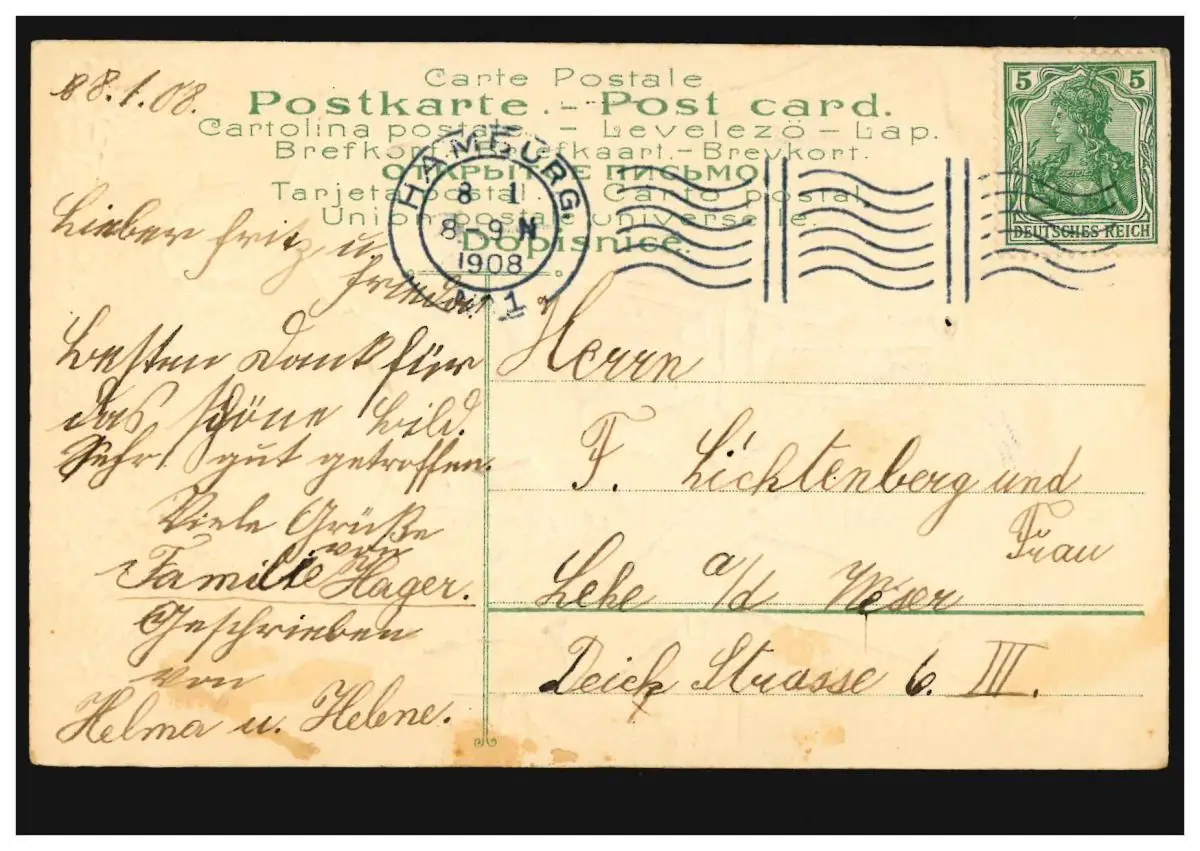 8.1.08.
Carte Postale
Postkarte. - Post card.
Cartolina postale - Levelező - Lap.
Brefkort - Briefkaart. - Brevkort.
ОТКРЫТОЕ ПИСЬМО
Tarjeta postal. Carto postal.
Union postale universelle.
Dopisnice.
HAMBURG
8 1
8-9 N
1908
1
5 5
DEUTSCHES REICH
Lieber Fritz u.
Frieda!
Besten Dank für
das schöne Bild.
Sehr gut getroffen.
Viele Grüße
von
Familie Hager.
Geschrieben
von
Helma u. Helene.
Herrn
F. Lichtenberg und
Frau
Lehe a/d Weser
Deich Strasse 6. III.